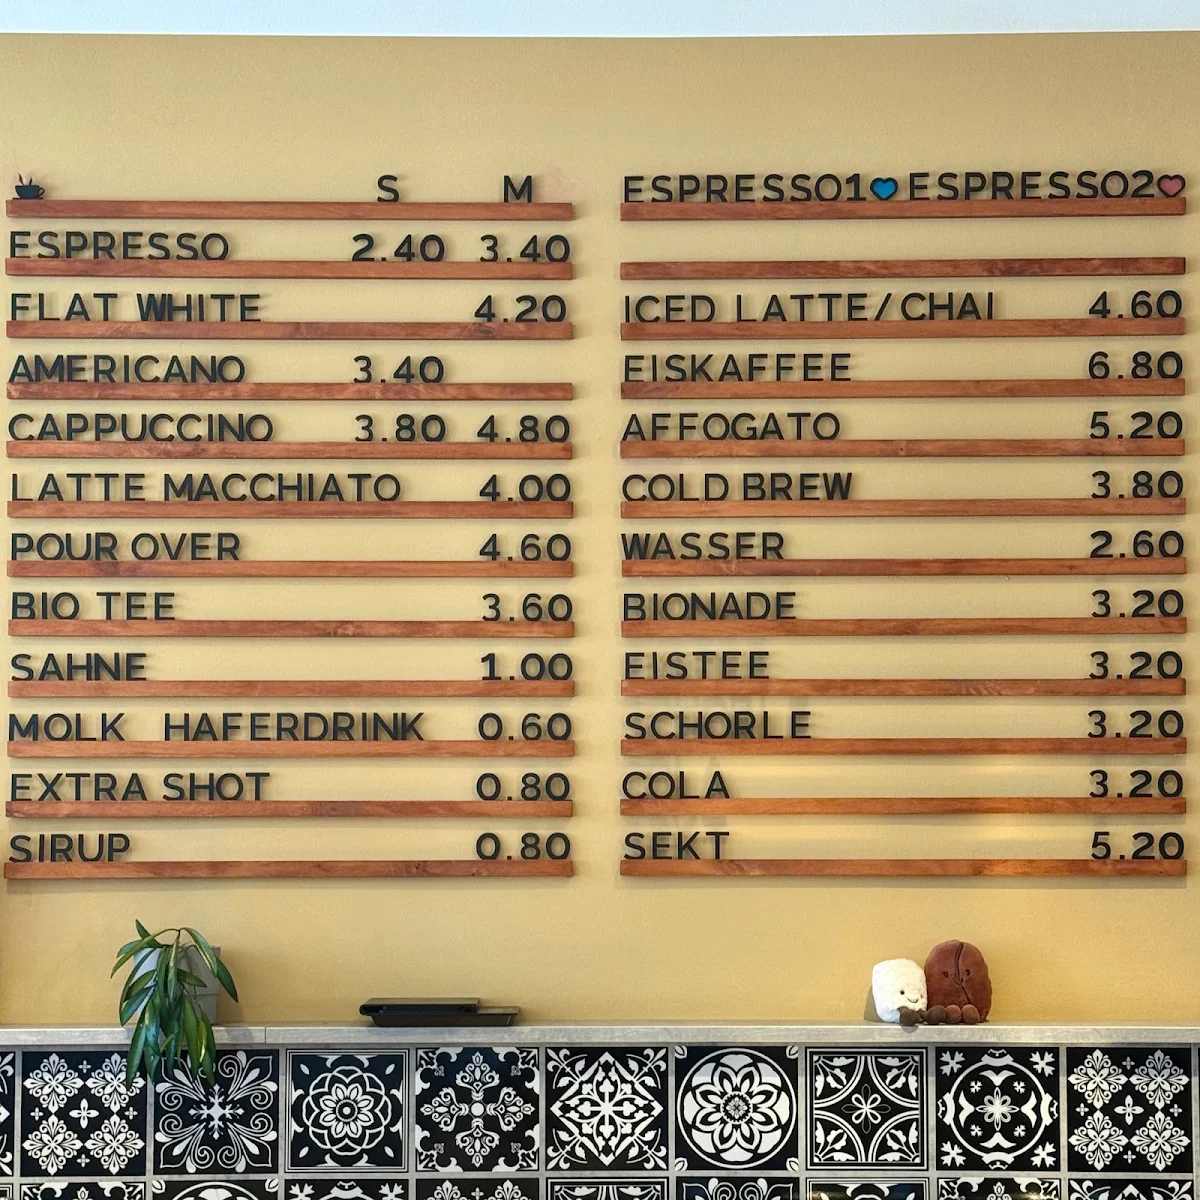 S M
ESPRESSO 2.40 3.40
FLAT WHITE 4.20
AMERICANO 3.40
CAPPUCCINO 3.80 4.80
LATTE MACCHIATO 4.00
POUR OVER 4.60
BIO TEE 3.60
SAHNE 1.00
MOLK HAFERDRINK 0.60
EXTRA SHOT 0.80
SIRUP 0.80
ESPRESSO1 ESPRESSO2
ICED LATTE/CHAI 4.60
EISKAFFEE 6.80
AFFOGATO 5.20
COLD BREW 3.80
WASSER 2.60
BIONADE 3.20
EISTEE 3.20
SCHORLE 3.20
COLA 3.20
SEKT 5.20